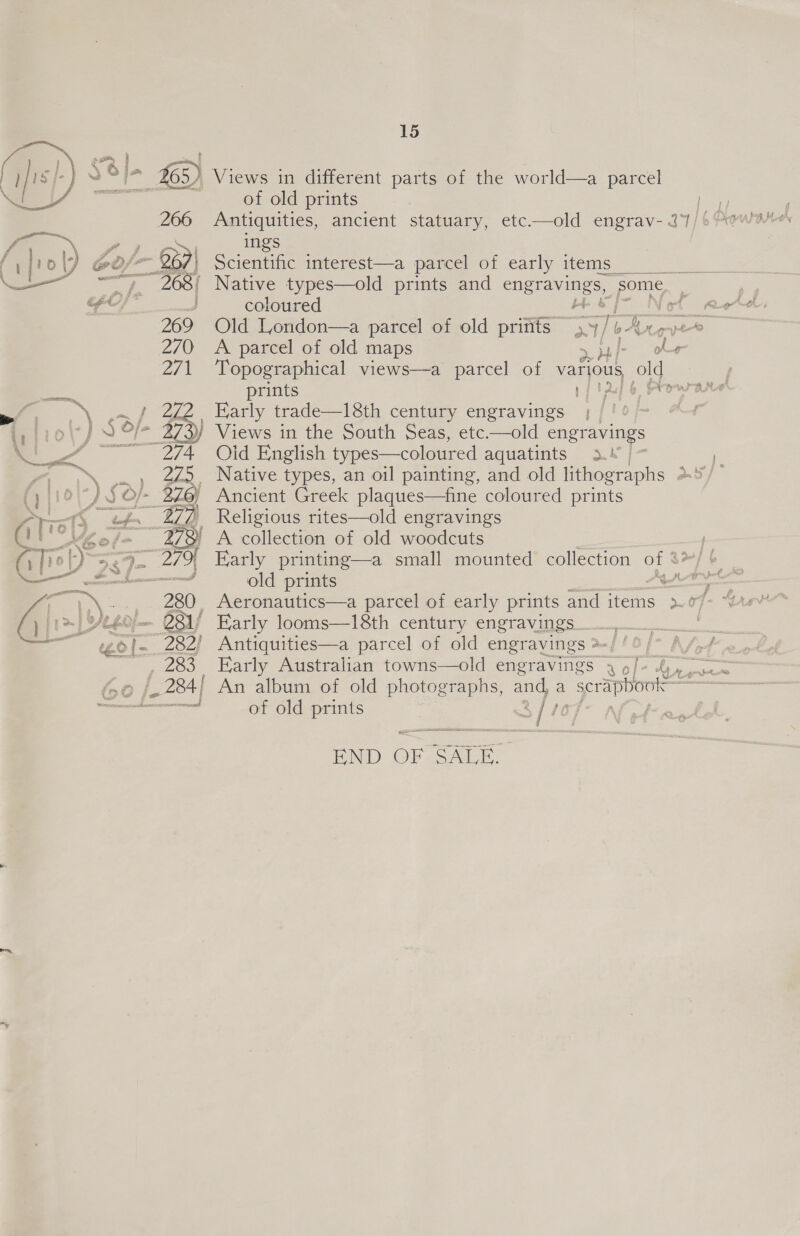 15
(1/15/-) 50/- 265) Views in different parts of the world—a parcel
of old prints
266 Antiquities, ancient statuary, etc.—old engrav- 37/6
ings
(1/10/-) 60/- 267) Scientific interest—a parcel of early items
268) Native types—old prints and engravings, some
coloured Not
269 Old London—a parcel of old prints 27/6
270 A parcel of old maps
271 Topographical views—a parcel of various old
prints
272 Early trade—18th century engravings
(1/10/-) 50/- 273) Views in the South Seas, etc.—old engravings
274 Old English types—coloured aquatints
275 Native types, an oil painting, and old lithographs 25/-
(1/10/-) 50/- 276) Ancient Greek plaques—fine coloured prints
277) Religious rites—old engravings
(1/10/-) 60/- 278) A collection of old woodcuts
(1/10/-) 279) Early printing—a small mounted collection of 32/6
old prints
280 Aeronautics—a parcel of early prints and items 20/-
281) Early looms—18th century engravings
40/- 282) Antiquities—a parcel of old engravings
283 Early Australian towns—old engravings 30/-
60/- 284) An album of old photographs, and a scrapbook
of old prints
END OF SALE.